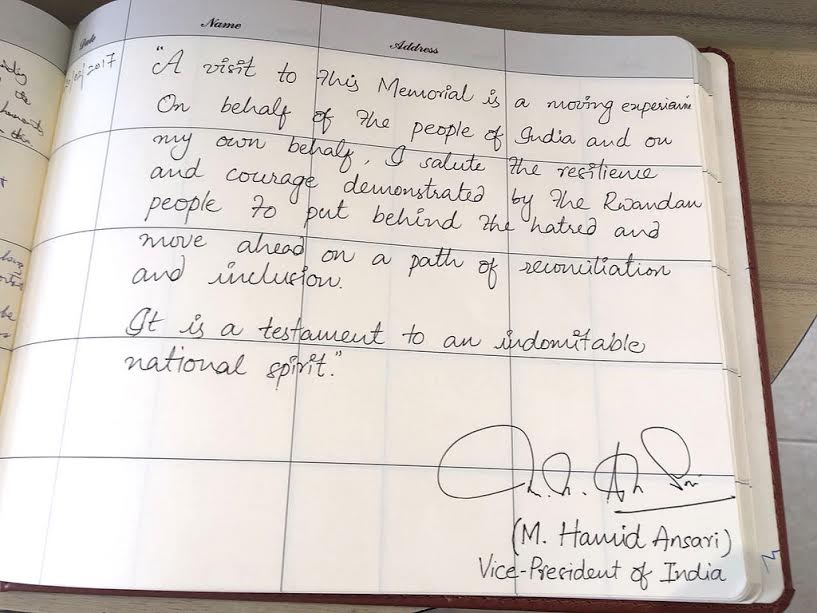 Date Name Address
/02/2017
"A visit to this Memorial is a moving experience
On behalf of the people of India and on
my own behalf, I salute the resilience
and courage demonstrated by the Rwandan
people to put behind the hatred and
move ahead on a path of reconciliation
and inclusion.
It is a testament to an indomitable
national spirit."
(M. Hamid Ansari)
Vice-President of India